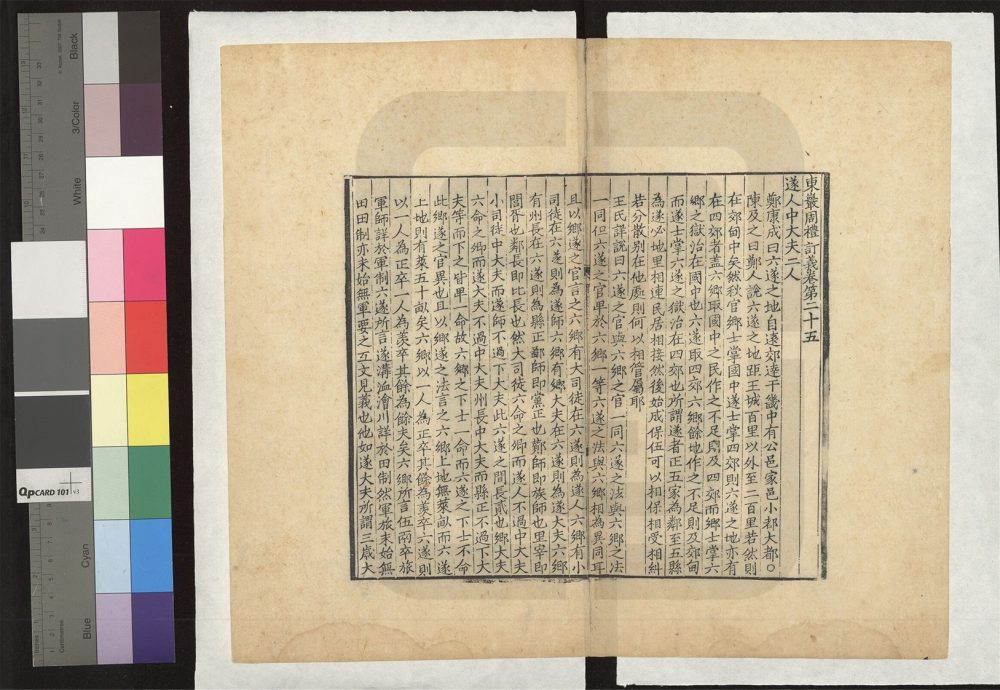 東巖周禮訂義卷第二十五
遂人中大夫二人
鄭康成曰六遂之地自遠郊達于畿中有公邑家邑小都大都○
陳及之曰鄭人說六遂之地距王城百里以外至二百里若然則
在郊甸中矣然秋官鄉士掌國中遂士掌四郊則六遂之地亦有
在四郊者蓋六鄉取國中之民作之不足則及四郊而鄉士掌六
鄉之獄治在國中也六遂取四郊六鄉餘地作之不足則及郊甸
而遂士掌六遂之獄治在四郊也所謂遂者正五家為鄰至五縣
為遂必地里相連民居相接然後始成保伍可以相保相受相糾
若分散別在他處則何以相管屬耶
王氏詳說曰六遂之官與六鄉之官一同六遂之法與六鄉之法
一同但六遂之官卑於六鄉一等六遂之法與六鄉相為異同耳
且以鄉遂之官言之六鄉有大司徒在六遂則為遂人六鄉有小
司徒在六遂則為遂師六鄉有鄉大夫在六遂則為遂大夫六鄉
有州長在六遂則為縣正鄙師即黨正也酇師即族師也里宰即
閭胥也鄰長即比長也然大司徒六命之卿而遂人不過中大夫
小司徒中大夫而遂師不過下大夫此六遂之間長貳也鄉大夫
六命之卿而遂大夫不過中大夫州長中大夫而縣正不過下大
夫等而下之皆卑一命故六鄉之下士一命而六遂之下士不命
此鄉遂之官異也且以鄉遂之法言之六鄉上地無萊畝而六遂
上地則有萊五十畝矣六鄉以一人為正卒其餘為羨卒六遂則
以一人為正卒一人為羨卒其餘為餘夫矣六鄉所言伍兩卒旅
軍師詳於軍制六遂所言遂溝洫澮川詳於田制然軍旅未始無
田田制亦未始無軍要之互文見義也他如遂大夫所謂三歲大